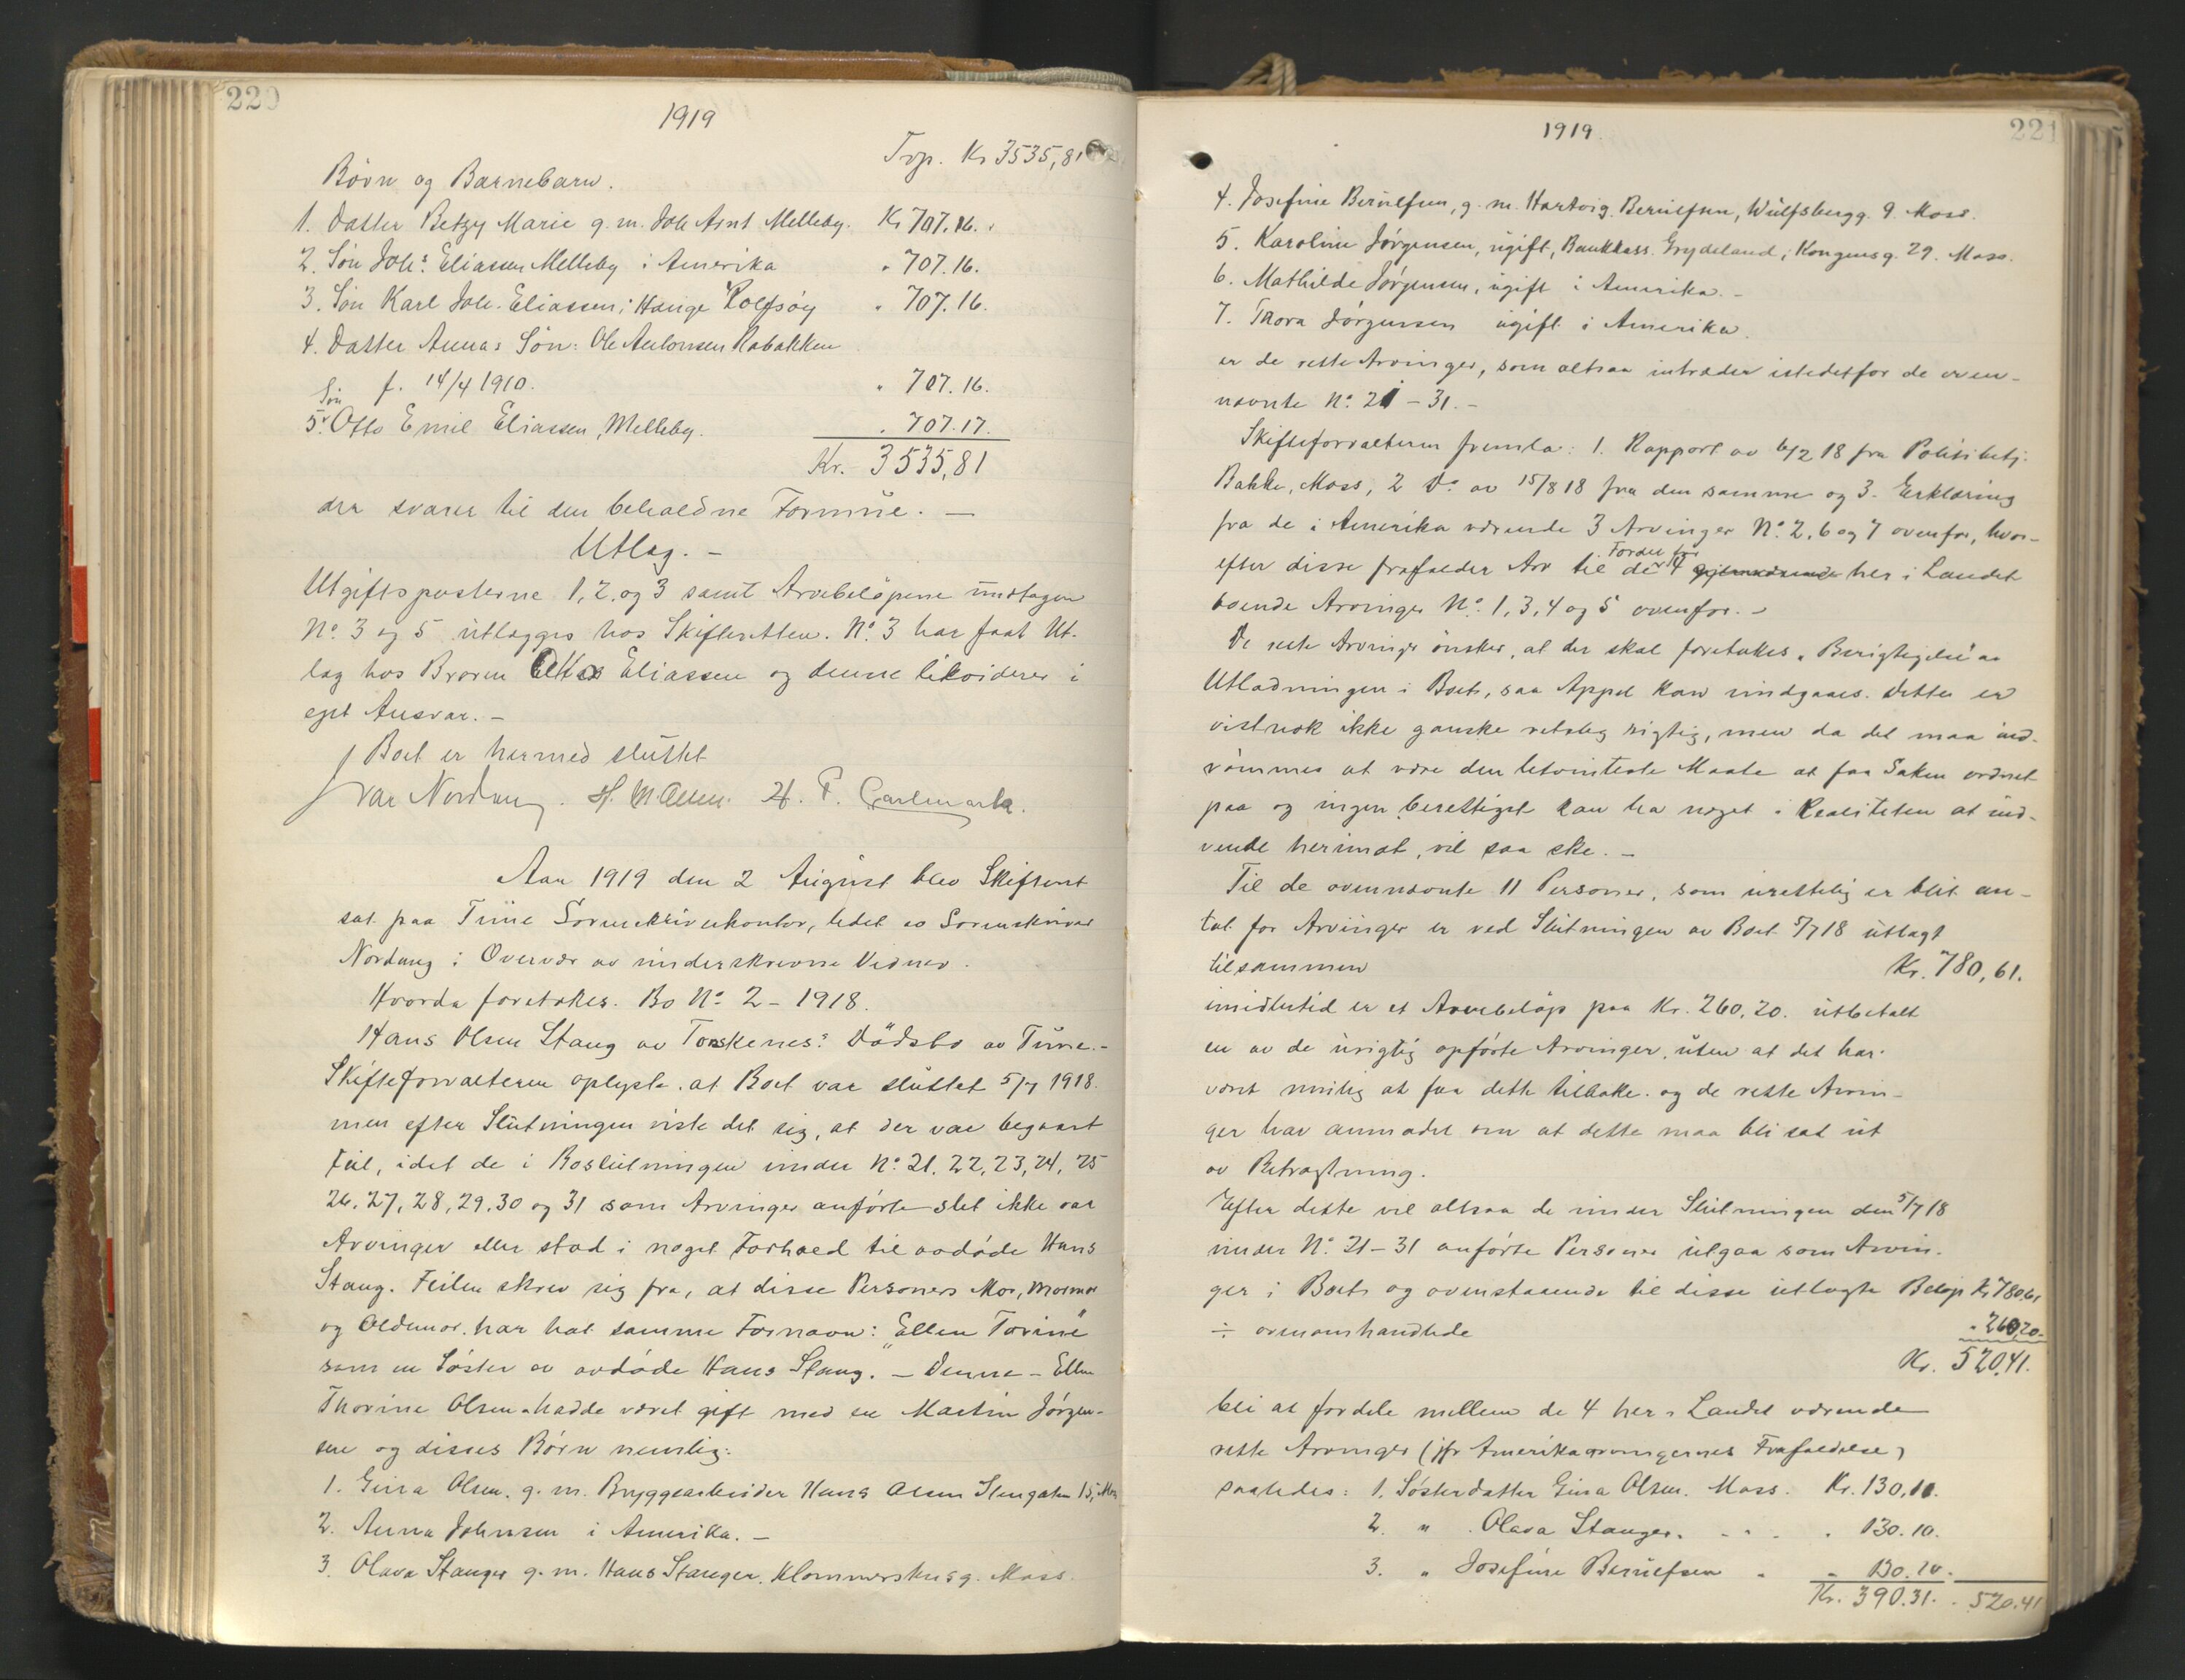 220
1919
Trp. Kr 3535,81
Börn og Barnebarn.
1. Datter Betzy Marie g. m. Joh Arnt Melleby. Kr 707.16.
2. Sön Johs. Eliassen Melleby i Amerika " 707.16.
3. Sön Karl Joh. Eliassen, Hauge Rolfsöy " 707.16.
4. Datter Annas Sön: Ole Antonsen Rabakken
f. 14/4 1910. " 707.16.
Sön
5. Otto Emil Eliassen, Melleby. " 707.17.
Kr. 3535,81
der svarer til den beholdne Formue. —
Utlæg. -
Utgiftsposterne 1, 2, og 3 samt Arvebelöpene undtagen
No. 3 og 5 utlægges hos Skifteretten. No. 3 har faat Ut-
læg hos Broren Otto Eliassen og denne likviderer i
eget Ansvar. -
Boet er hermed sluttet
Ivar Nordung. H. F. Carlmark.
Aar 1919 den 2 August blev Skifteret
sat paa Tune Sorenskriverkontor, ledet av Sorenskriver
Nordung i Overvær av underskrevne Vidner.
Hvorda foretokes. Bo No. 2 - 1918.
Hans Olsen Stang av Torskenes: Dödsbo av Tune. -
Skifteforvalteren oplyste, at Boet var sluttet 5/7 1918.
men efter Slutningen viste det sig, at der var begaaet
Feil, idet de i Boslutningen under No. 21, 22, 23, 24, 25
26, 27, 28, 29, 30 og 31 som Arvinger anförte slet ikke var
Arvinger eller stod i noget Forhold til avdöde Hans
Stang. Feilen skrev sig fra, at disse Personers Mor, Mormor
og Oldemor har hat samme Fornavn: "Ellen Torine"
som en Söster av avdöde Hans Stang. - Denne - Ellen
Thorine Olsen - hadde været gift med en Martin Jörgen-
sen og disses Börn nemlig:
1. Gina Olsen, g. m. Bryggearbeider Hans Olsen Stengaten 15, Moss
2. Anna Johnsen i Amerika. -
3. Olava Stanger g. m. Hans Stanger, Moss.
1919.
221
4. Josefine Berulfsen, g. m. Hartvig Berulfsen, Wulfsbergg. 9. Moss.
5. Karoline Jörgensen, ugift, Bankkass. Grydeland, Kongensg. 29. Moss.
6. Mathilde Jörgensen, ugift i Amerika. -
7. Thora Jörgensen ugift i Amerika.
er de rette Arvinger, som altsaa intræder istedetfor de oven-
nævnte No. 21 - 31. -
Skifteforvalteren fremla: 1. Rapport av 6/2 18 fra Politibetj.
Bakke, Moss, 2 Do. av 15/8 18 fra den samme og 3. Erklæring
fra de i Amerika værende 3 Arvinger No. 2, 6 og 7 ovenfor, hvor-
Fordel for
efter disse frafalder Arv til de 4 her i Landet
boende Arvinger No. 1, 3, 4 og 5 ovenfor. -
De rette Arvinger önsker, at der skal foretakes "Berigtigelse" av
Utlodningen i Boet, saa Appel kan undgaaes. Dette er
vistnok ikke ganske retslig rigtig, men da det maa ind-
römmes at være den letvinteste Maate at faa Saken ordnet
paa og ingen berettiget kan ha noget i Realiteten at ind-
vende herimot, vil saa ske. -
Til de ovennævnte 11 Personer, som urettelig er blit an-
tat for Arvinger er ved Slutningen av Boet 5/7 18 utlagt
tilsammen Kr. 780,61.
imidlertid er et Arvebelöp paa Kr. 260,20. utbetalt
en av de urigtig opförte Arvinger, uten at det har
været mulig at faa dette tilbake, og de rette Arvin-
ger har anmodet om at dette maa bli sat ut
av Betragtning.
Efter dette vil altsaa de under Slutningen den 5/7 18
under No. 21 - 31 anförte Personer utgaa som Arvin-
ger i Boet og ovenstaaende til disse utlagte Belöp Kr 780,61
÷ ovenomhandlede " 260,20.
Kr. 520,41.
bli at fordele mellem de 4 her i Landet værende
rette Arvinger (jfr Amerikaarvingernes Frafaldelse)
saaledes: 1. Sösterdatter Gina Olsen. Moss. Kr. 130,10.
2. " Olava Stanger. " " 130.10.
3. " Josefine Berulfsen " " 130.10.
Kr. 390.31. 520.41